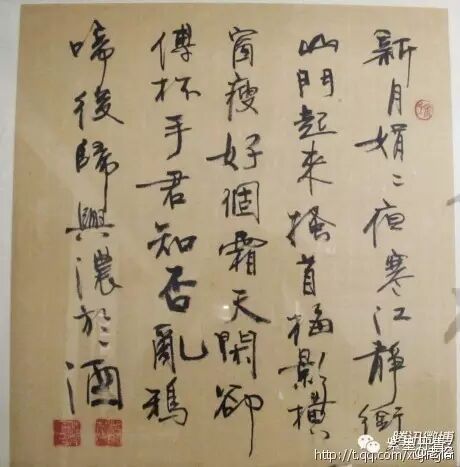 新月娟〻夜寒江靜銜
山門起來搔首梅影橫
窗瘦好個霜天閑卻
傳杯手君知否亂鴉
啼後歸興濃於酒
腾讯微博